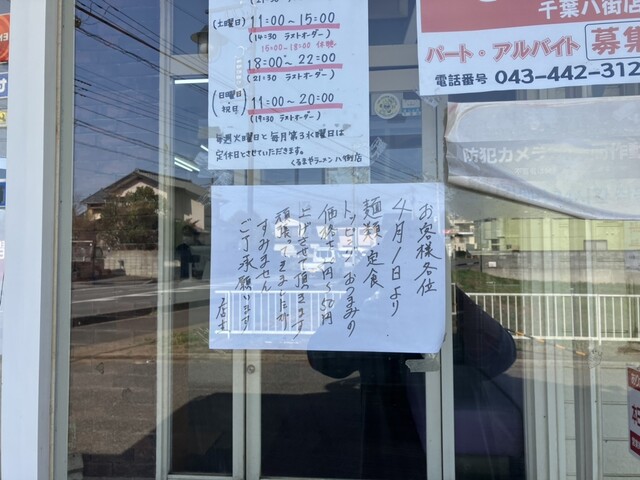 (土曜日) 11:00~15:00
(14:30 ラストオーダー)
15:00-18:00 休憩
18:00~22:00
(21:30 ラストオーダー)
(日曜日・祝日) 11:00~20:00
(19:30 ラストオーダー)
毎週火曜日と毎月第3水曜日は
定休日とさせていただきます。
くるまやラーメン八街店
千葉八街店
パート・アルバイト 募集
電話番号 043-442-312
防犯カメラ
お客様各位
4月1日より
麺類、定食
トッピング、おつまみの
価格を
50円
上げさせて頂きます
頑張ってきましたが
すみません
ご了承願います
店主